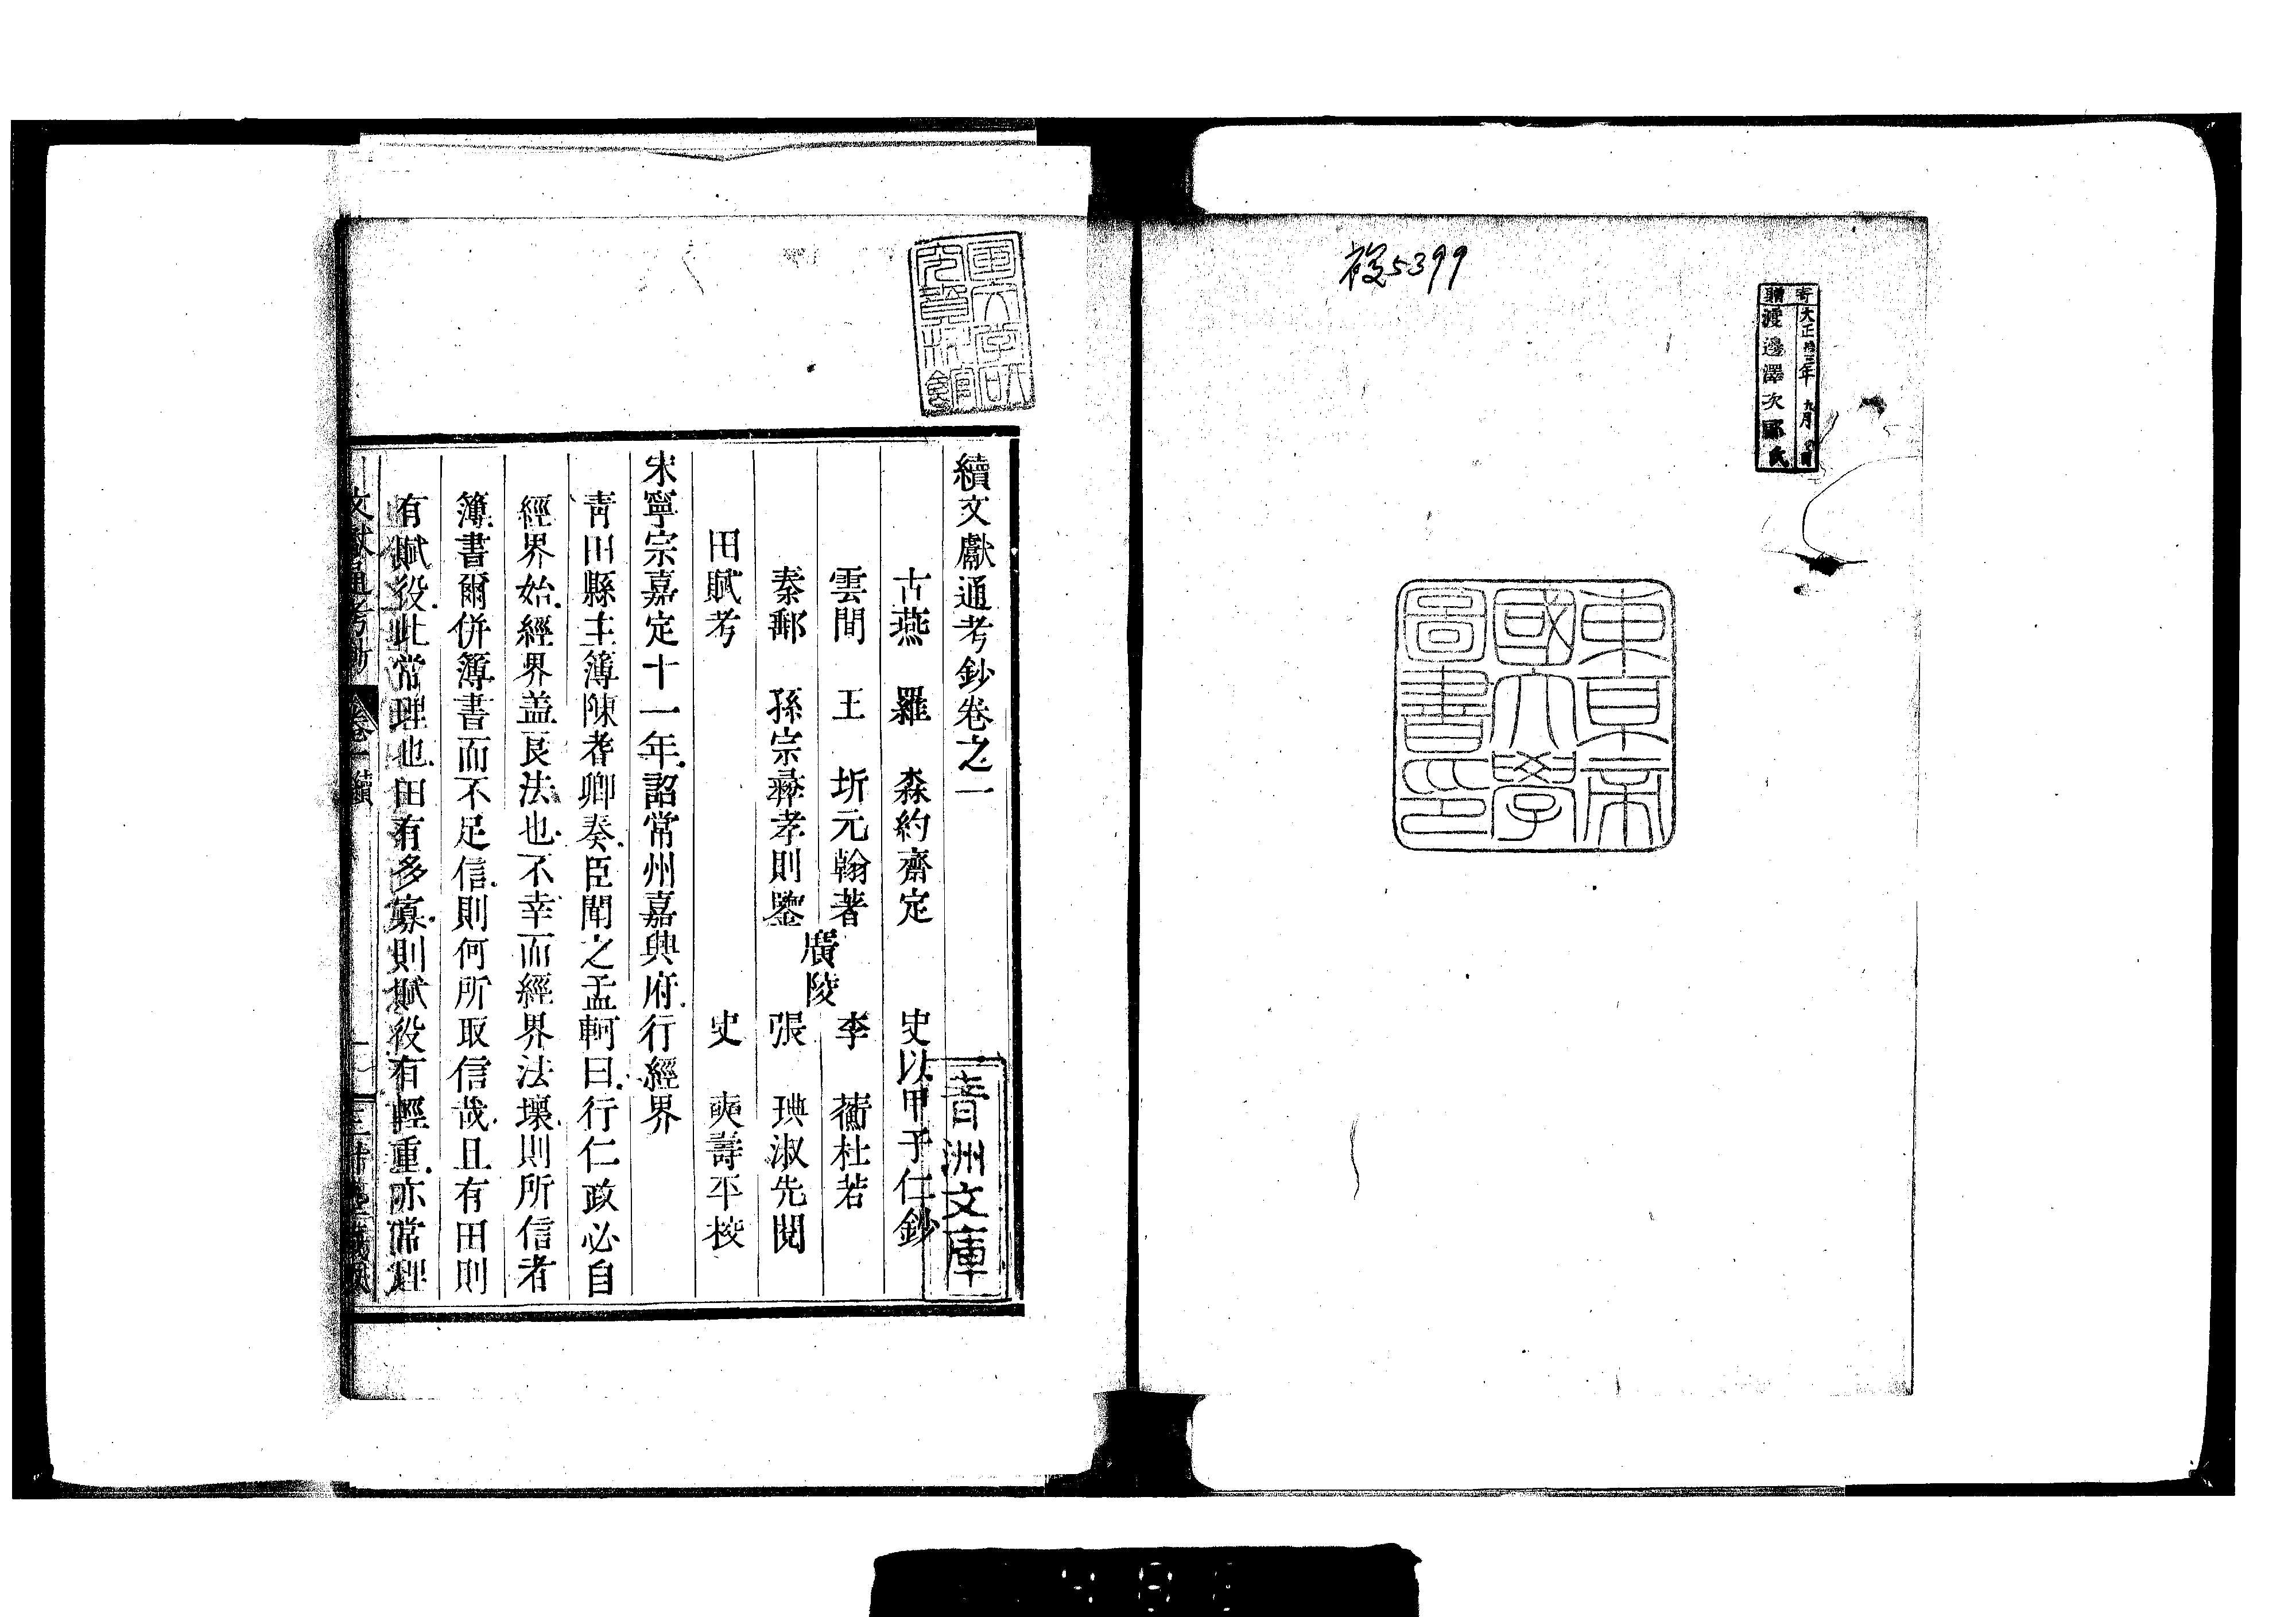 複5399
寄贈
大正拾三年九月
渡邊澤次郎氏
東京帝
國大學
圖書印
續文獻通考鈔卷之一
古燕 羅 森約齋定 史以甲子仁鈔
雲間 王 圻元翰著 李 蘅杜若
廣陵
秦郵 孫宗彝孝則鑒 張 琠淑先閱
田賦考 史 奭壽平校
宋寧宗嘉定十一年詔常州嘉興府行經界
青田縣主簿陳耆卿奏臣聞之孟軻曰行仁政必自
經界始經界蓋良法也不幸而經界法壞則所信者
簿書爾併簿書而不足信則何所取信哉且有田則
有賦役此常理也田有多寡則賦役有輕重亦常理
文獻通考鈔 卷一 續
青洲文庫